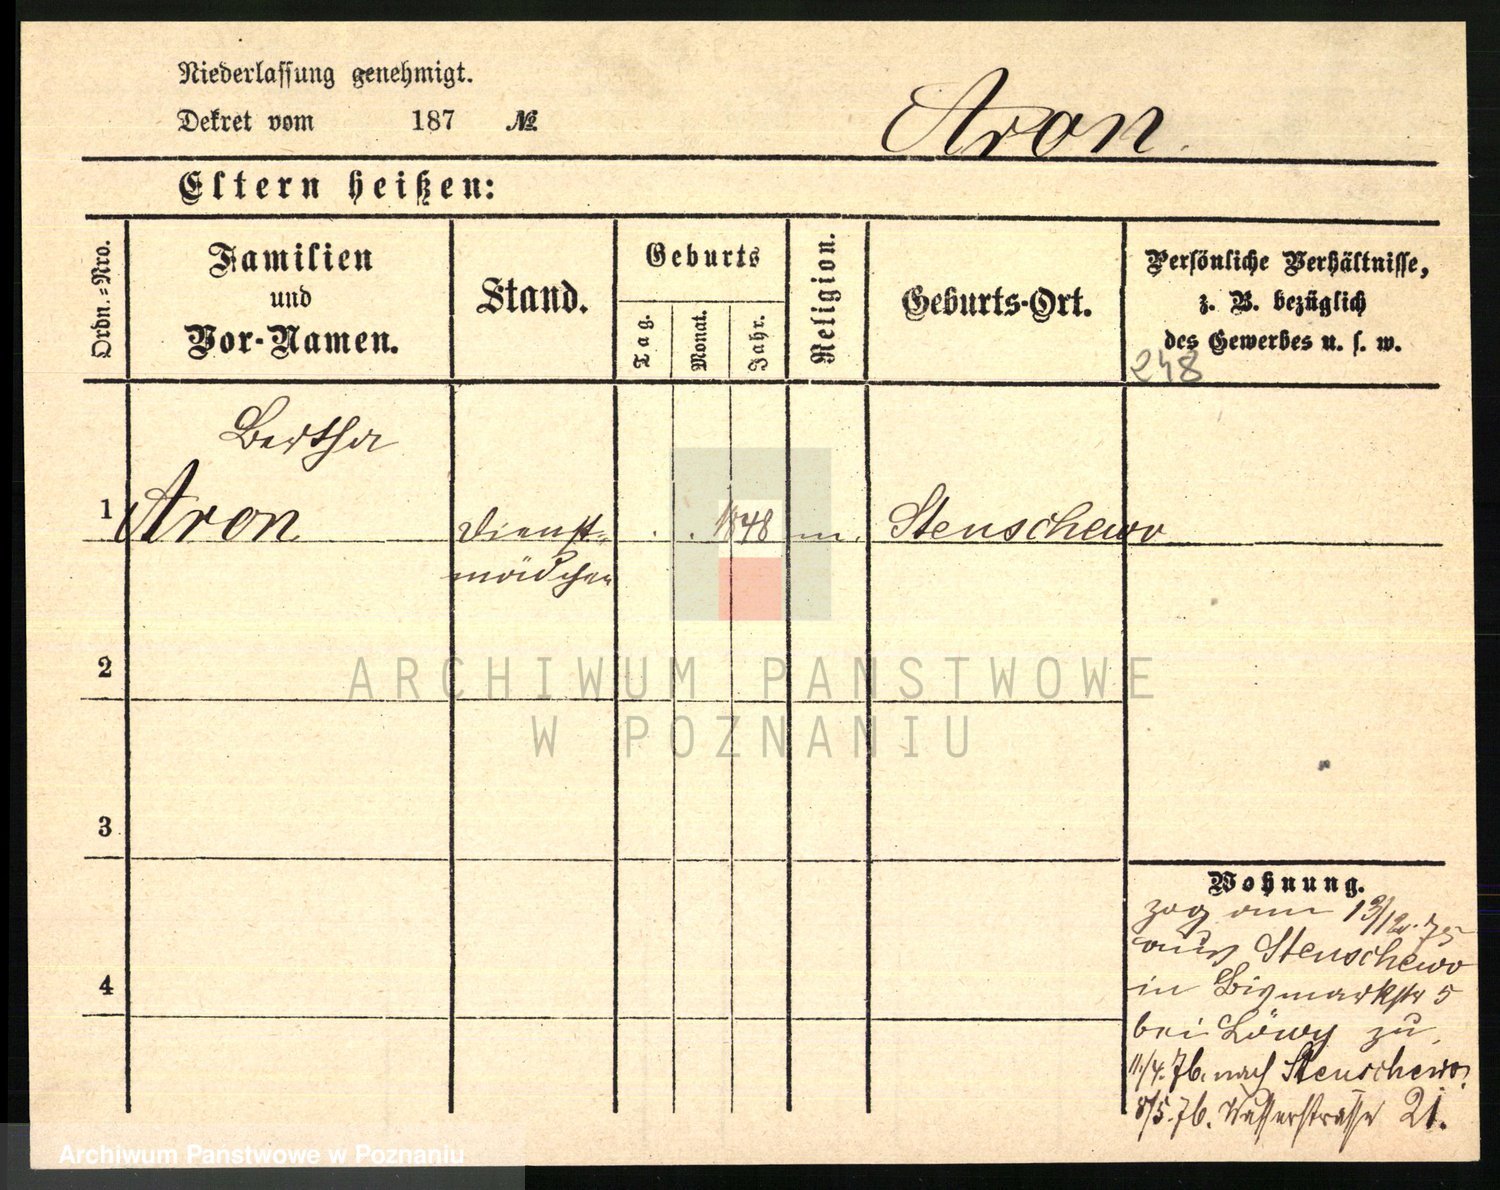 Niederlassung genehmigt.
Dekret vom 187 №
Aron.
Eltern heißen:
Ordn.-Nro.
Familien
und
Vor-Namen.
Stand.
Geburts
Tag.
Monat.
Jahr.
Religion.
Geburts-Ort.
Persönliche Verhältnisse,
z. B. bezüglich
des Gewerbes u. s. w.
248
Bertha
1 Aron Dienst= . . 1848 m. Stenschewo
mädchen
2
3
4
Wohnung.
zog am 13/12. 75
aus Stenschewo
in Bismarkstr 5
bei Löwy zu.
11./4. 76. nach Stenschewo.
8/5. 76. Wasserstrasse 21.
ARCHIWUM PANSTWOWE
W POZNANIU
Archiwum Panstwowe w Poznaniu